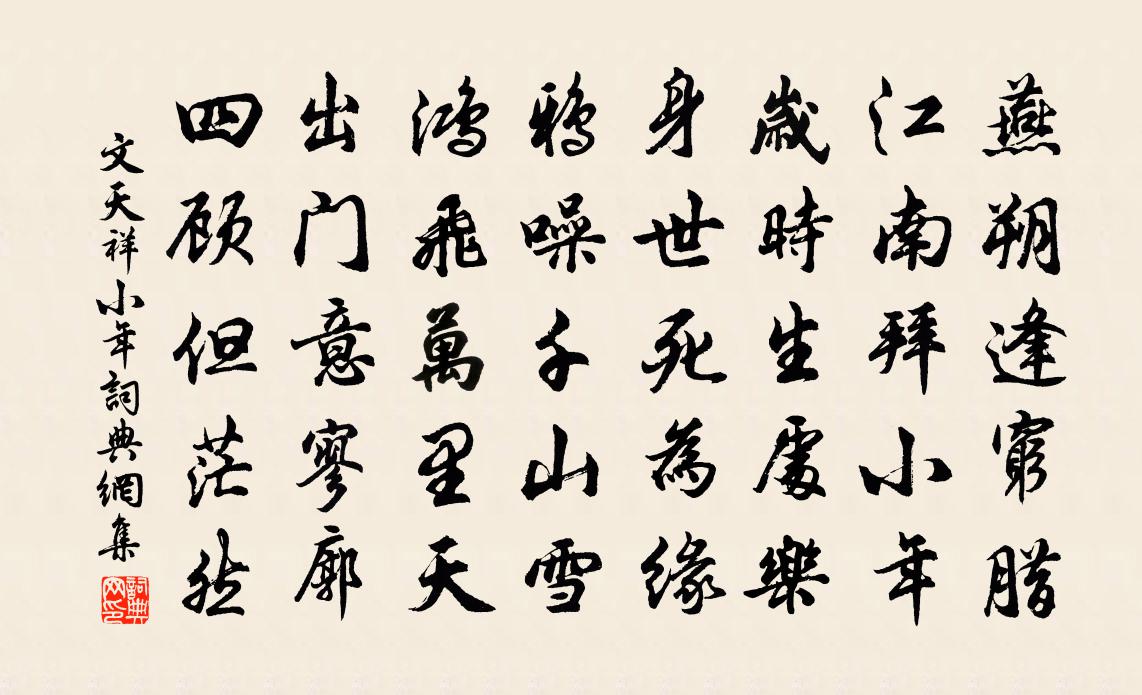 燕朔逢窮腊
江南拜小年
歲時生處樂
身世死為緣
鴉噪千山雪
鴻飛萬里天
出门意寥廓
四顾但茫然
文天祥小年詞典網集
詞典网印